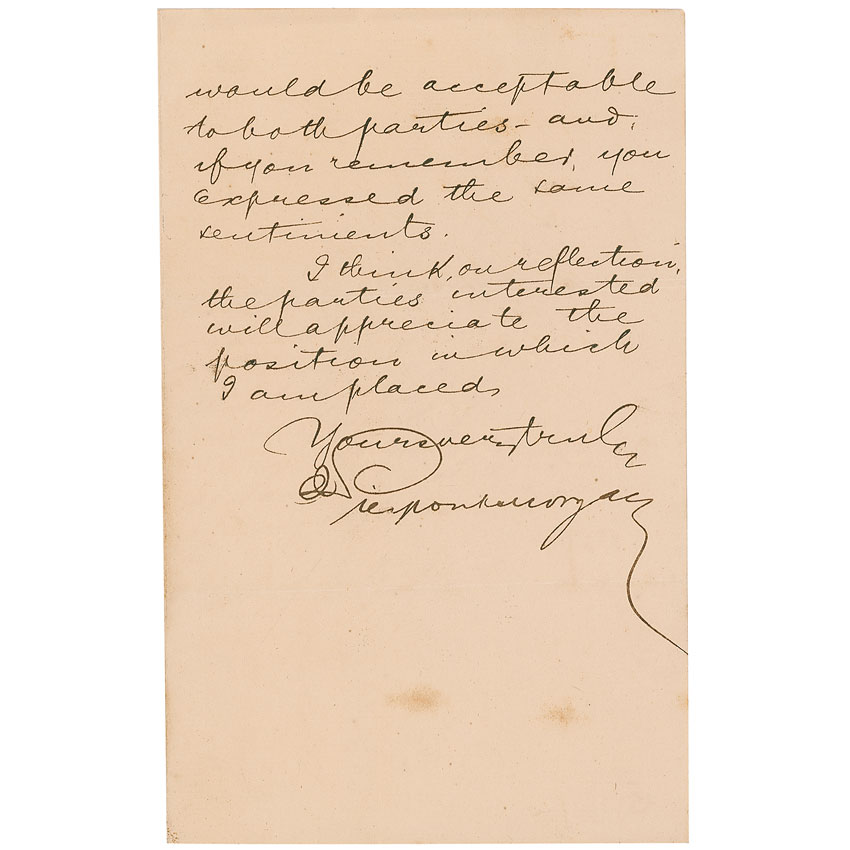 would be acceptable
to both parties - and,
if you remember, you
expressed the same
sentiments.
I think, on reflection,
the parties interested
will appreciate the
position in which
I am placed,
Yours very truly
J. Pierpont Morgan